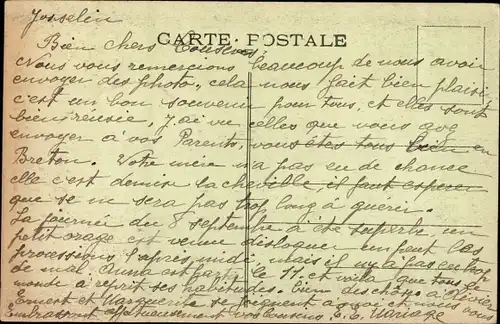 Josselin
CARTE POSTALE
Bien chers Cousins,
Nous vous remercions beaucoup de nous avoir
envoyer des photo, cela nous fait bien plaisir
c'est un bon souvenir pour tous, et elles sont
bien reussie, J'ai vu celles que vous ave
envoyer à vos Parents, vous êtes tous bien en
Breton. Votre mère n'a pas eu de chance
elle c'est demise la cheville, il faut esperer
que se ne sera pas trop long à guérir.
La journée du 8 septembre a été superbe, un
petit orage est venue disloquer un peut les
processions l'après midi, mais il n'y a pas eu trop
de mal. Anna est partie le 11. et voila que tous le
monde à reprit ses habitudes. bien des choses à
Ernest et Marguerite se joignent à moi et nous vous
Embrassont affectueusement vos Cousins. Mariage